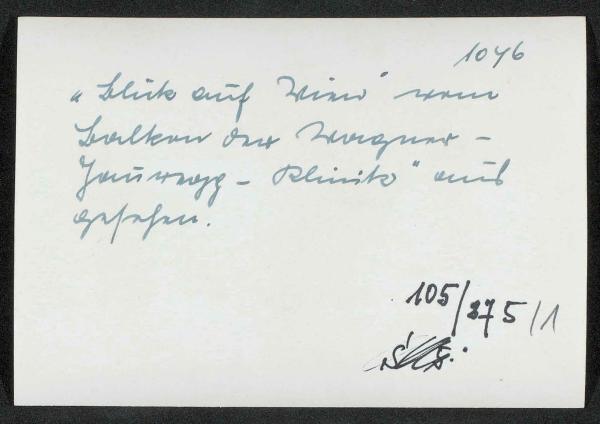 1046
„Blick auf Wien" vom
Balkon der Wagner-
Jauregg-Klinik" aus
gesehen.
105/375/1